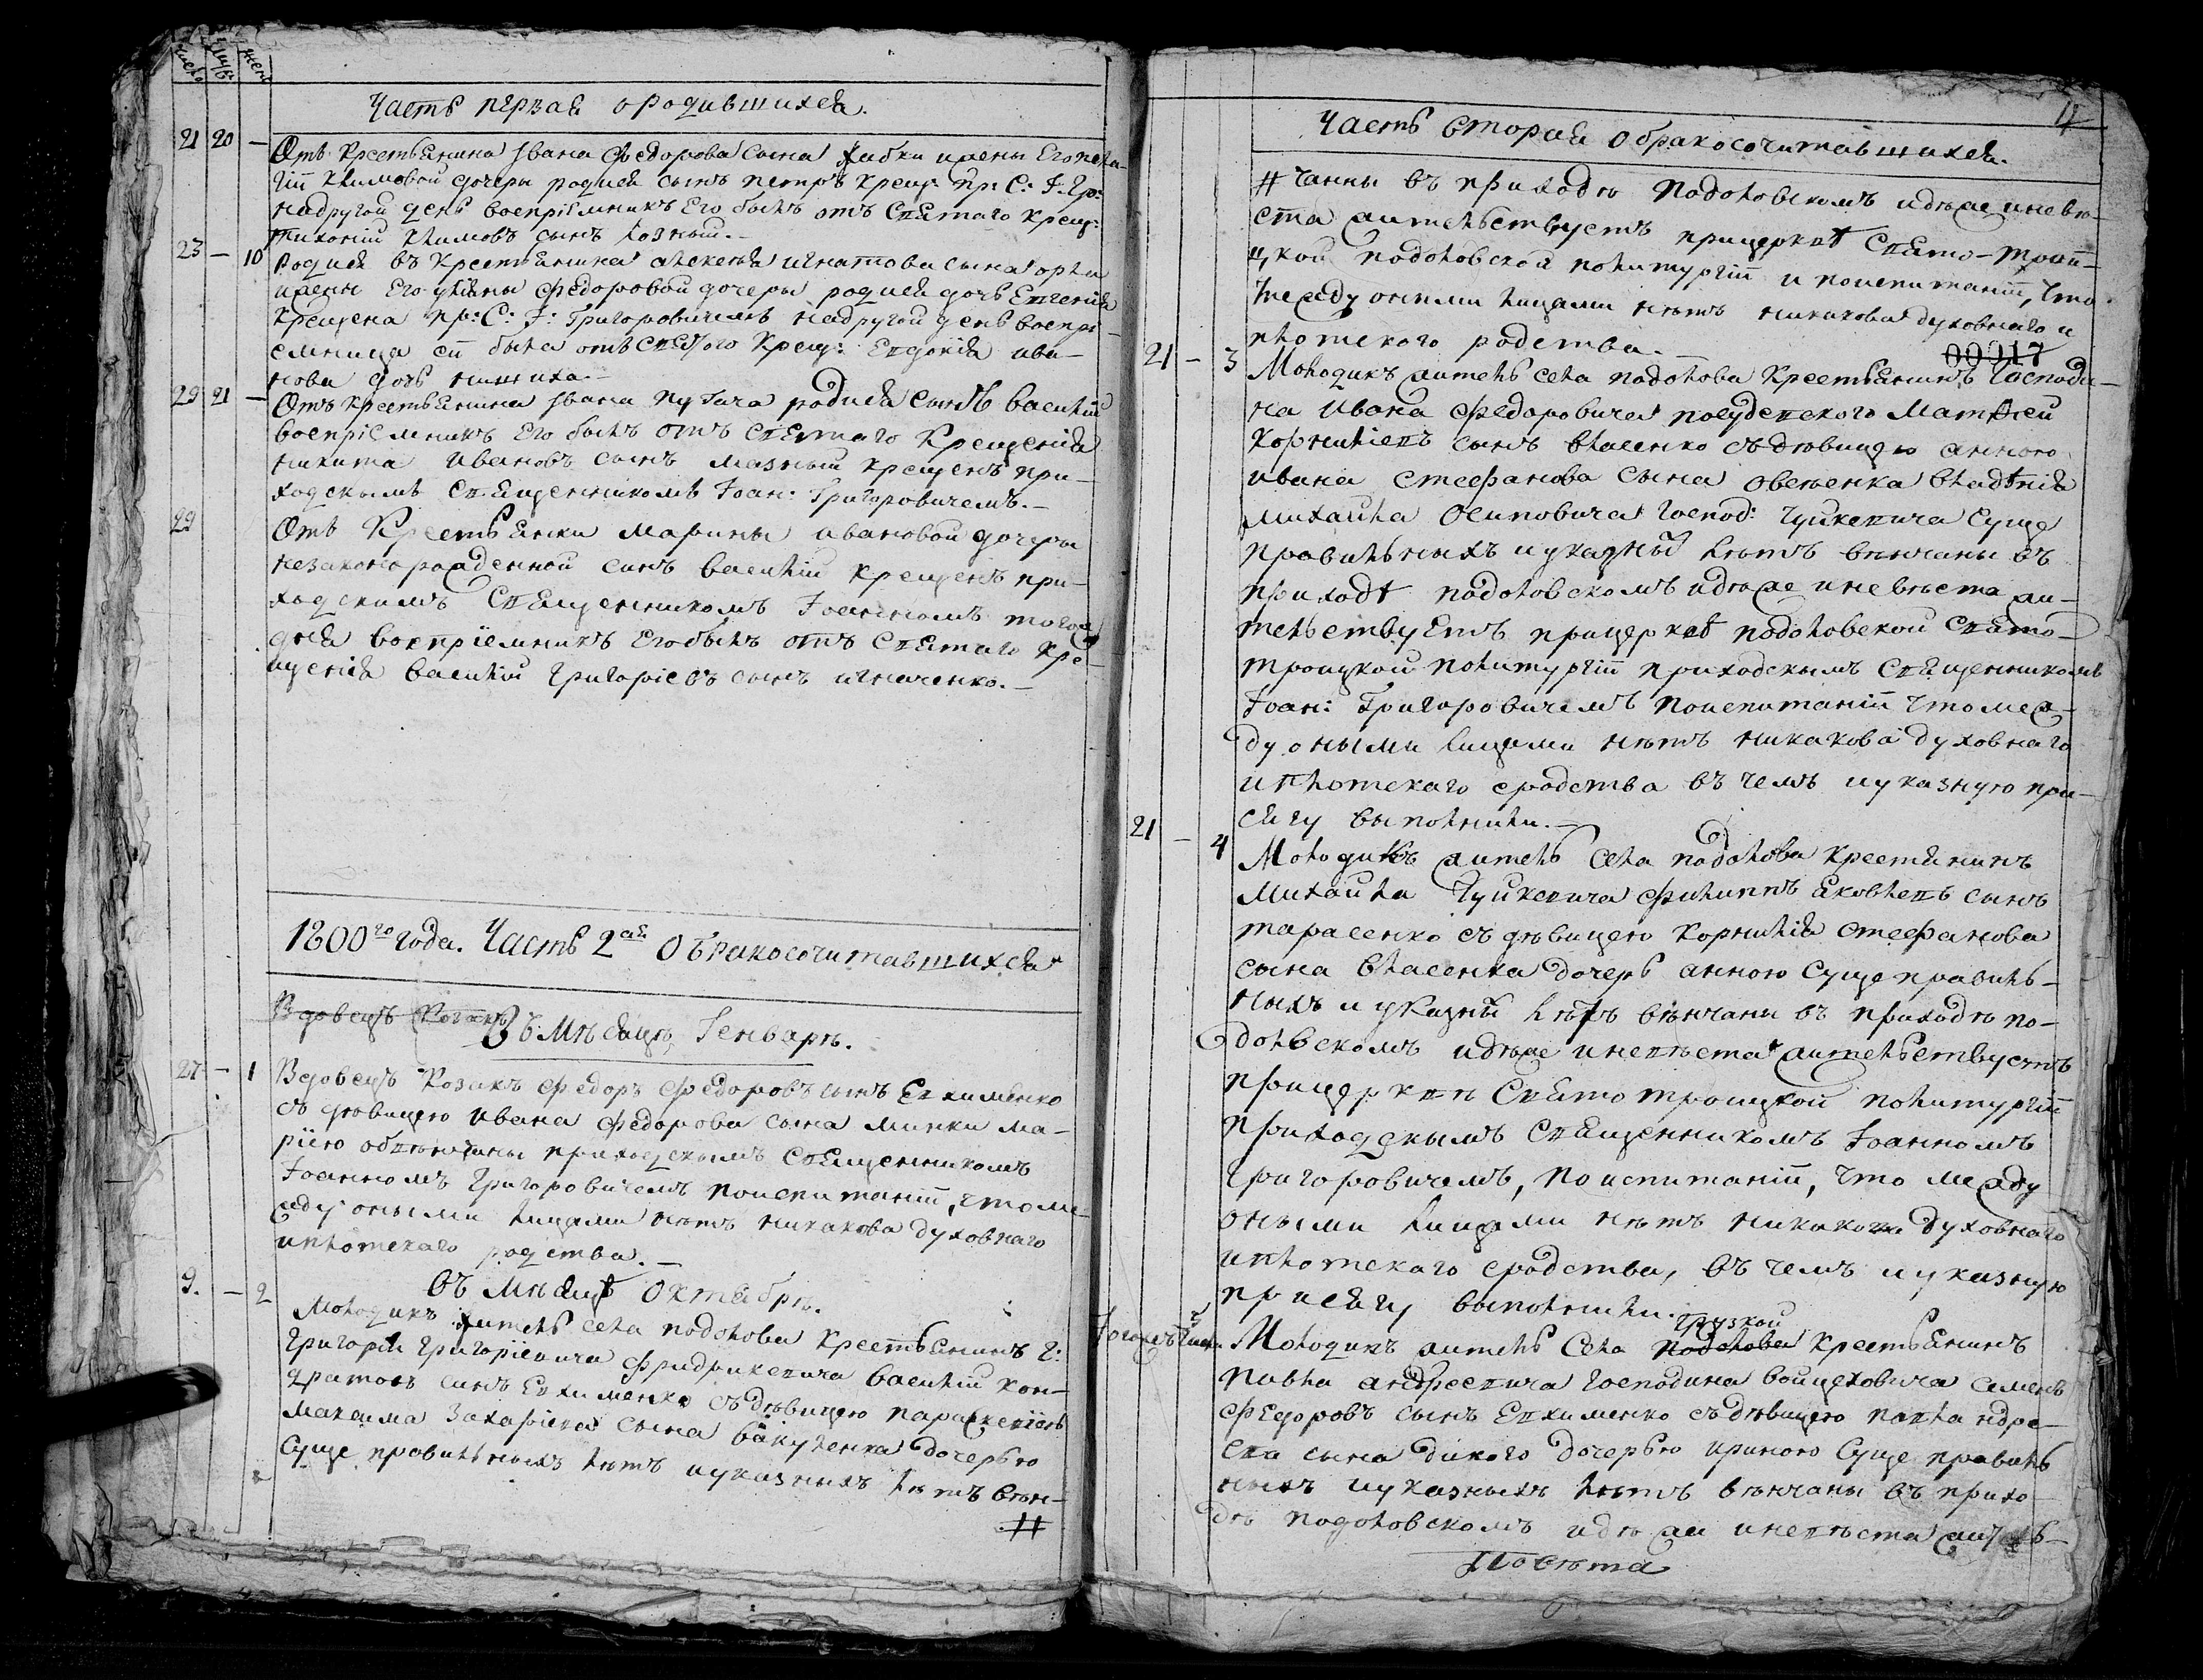 число муж: жен:
Часть первая о родившихся.
21 20 — Отъ Крестьянина Ивана Федорова сына жены Его пела-
гіи Климовой дочеры родися сынъ петръ крещ: пр: С: І: Гр:
на другой день воспріемникъ Его былъ отъ Святаго крещ:
климовъ сынъ
23 — 10 Родися въ Крестьянина алексея игнатова сына орла
жены Его улияны федоровой дочеры родися дочь Евгенія
Крещена пр: С: І: Григоровичемъ на другой день воспрі-
емница ей была отъ Святого Крещ: Евдокія ива-
нова дочь
29 21 — Отъ крестьянина Ивана пугача родися сынъ василій
воспріемникъ Его былъ отъ святаго Крещенія
никита Ивановъ сынъ мазный крещенъ при-
ходскымъ священникомъ Іоан: Григоровичемъ.—
29 Отъ Крестьянки марины ивановой дочеры
незаконорожденной синъ василій крещенъ при-
ходскимъ Священникомъ Іоанномъ тогож
дня воспріемникъ Его былъ отъ Святаго кре-
щенія василій григоріевъ сынъ игначенко.—
1800го года. Часть 2ая О бракосочитавшихся
Вдовецъ Козакъ
Въ Мѣсяцѣ Генварѣ.
27 — 1 Вдовецъ Козакъ федоръ федоровъ сынъ Евхименко
съ дѣвицею ивана федорова сына минки ма-
ріею обвѣнчаны приходскымъ Священникомъ
Іоанномъ григоровичемъ по испитаніи, что ме-
жду оными лицами нѣтъ никакова духовнаго
и плотскаго родства.—
въ Мѣсяцѣ октябрѣ.
9. — 2 Молодикъ житель села подолова Крестьянинъ г:
григорія григоріевича фридрикевича василій кон-
дратовъ синъ Евхименко съ дѣвицею параскевіею
максима захаріева сына бакуленка дочерью
Суще правильныхъ лѣтъ и указныхъ лѣтъ вѣн-
#
4
Часть вторая о бракосочитавшихся.
# чанны въ приходѣ подоловскомъ идѣже и невѣ-
ста жительствуетъ при церквѣ Свято-трои-
цкой подоловской по литургіи и по испитаніи, что
между оными лицами нѣтъ никакова духовнаго и
плотского родства.—
00017
21 — 3 Молодикъ житель села подолова Крестьянинъ Господи-
на Ивана федоровича матфей
корниліевъ сынъ власенко съ дѣвицею анною
ивана стефанова сына овсѣенка владѣнія
михаила осиповича Господ: Чуйкевича Суще
правильныхъ и указный лѣтъ вѣнчаны въ
приходѣ подоловскомъ идѣже и невѣста жи-
тельствуетъ при церквѣ подоловской свято-
троицкой по литургіи приходскымъ Священникомъ
Іоан: Григоровичемъ по испитаніи что меж-
ду оными лицами нѣтъ никакова духовнаго
и плотскаго сродства въ чемъ и указную при-
сягу выполнили.—
21 — 4 Молодикъ житель села подолова крестянинъ
михаила Чуйкевича филиппъ яковлевъ сынъ
тарасенко съ дѣвицею корнилія стефанова
сына власенка дочерь анною суще правиль-
ныхъ и указній лѣтъ вѣнчани въ приходѣ по-
доловскомъ идѣже и невѣста жительствуетъ
при церквѣ Свято троицкой по литургіи
приходскымъ Священникомъ Іоанномъ
григоровичемъ, по испитаніи, что между
оными лицами нѣтъ никакова духовнаго
и плотскаго сродства, въ чемъ и указную
присягу выполнили.
Молодикъ житель Села подолова Крестьянинъ
павла андреевича господина войцеховича семенъ
федоровъ сынъ Евхименко съ дѣвицею павла ндре-
ева сына дикого дочерью ириною суще правиль
ныхъ и указныхъ лѣтъ вѣнчаны въ прихо-
дѣ подоловскомъ идѣжи и невѣста житель-